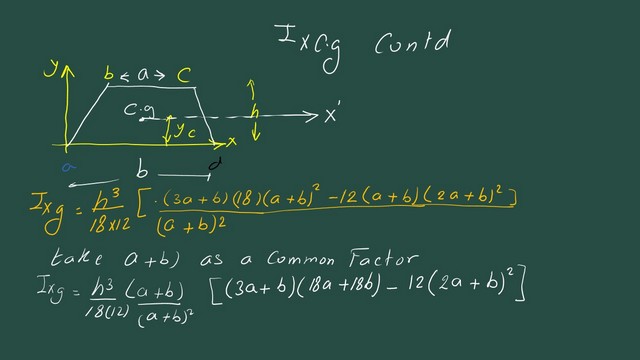 Ixc.g Contd
y b < a > C
C.g h x'
yc x
a b d
Ixg = h³/18x12 [ (3a+b)(18)(a+b)² - 12(a+b)(2a+b)² ] / (a+b)²
take a+b) as a Common Factor
Ixg = h³/18(12) (a+b)/(a+b)² [(3a+b)(18a+18b) - 12(2a+b)²]